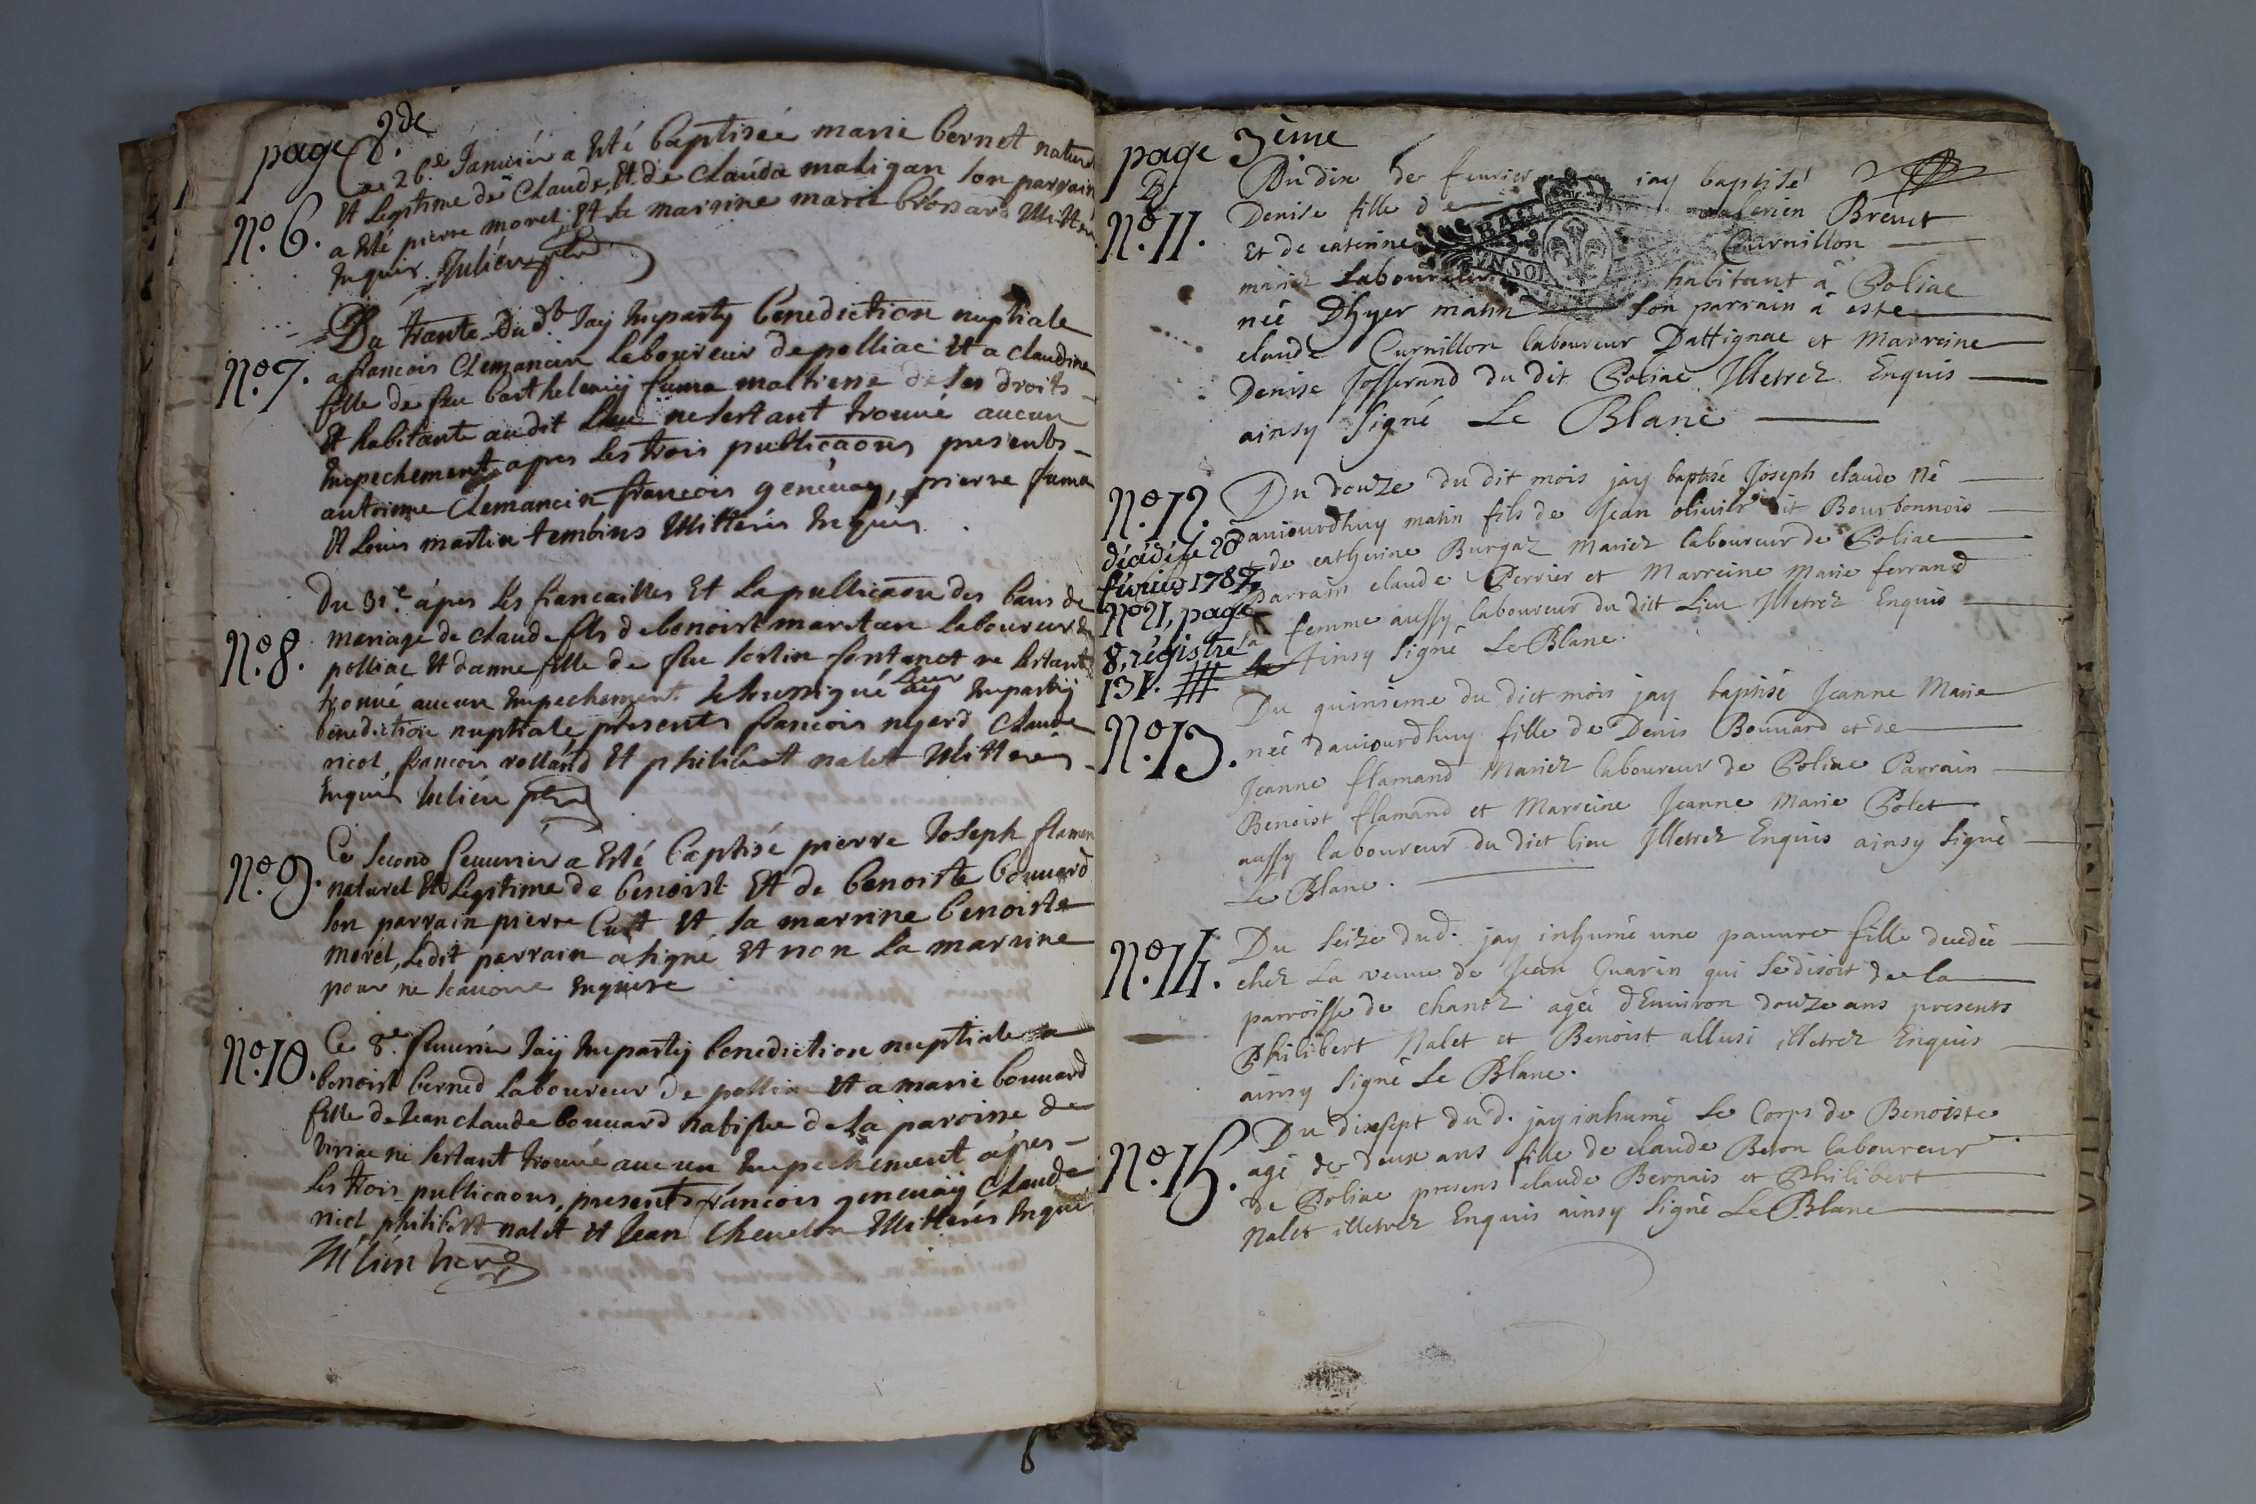 page 2.de
Ce 26.e Januier a Esté baptisée marie bernet nature
Et legitime de Claude, Et de Clauda maligan son parrain
N.o 6. a Esté pierre morel Et la marine marie brossard Illitter
Enquis. Julien
Du trante Dud. Jay Imparty benediction nuptiale
N.o 7. a francois Clemancin laboureur de polliac Et a claudine
fille de feu barthelemy fuma maitresse de ses droits
Et habitante audit lieu ne sestant trouué aucun
Empechement apres les trois publicaons presents
antoine Clemancin francois geneuay, pierre fuma
Et Louis martin temoins Illitterés Enquis
Du 31.e apres les fiancailles Et la publicaon des bans de
N.o 8. mariage de claude fils de benoist maritan laboureur de
polliac Et danne fille de feu fontanet ne sestant
trouué aucun Empechement. Je soussigné leur ay Imparty
benediction nuptiale presents francois nyard Claude
nicol, francois rolland Et philibert nalet Illitterés
Enquis Julien
Ce second feuurier a Esté baptisé pierre Joseph flamen
N.o 9. naturel Et Legitime de benoist Et de benoiste bouuard
son parrain pierre Cutt Et sa marrine benoiste
morel, Ledit parrain a signé Et non La marrine
pour ne scauoir Enquise
Ce 8.e feuurier Jay Imparty benediction nuptiale a
N.o 10. benoist berned laboureur de polliac Et a marie bouuard
fille de Jean claude bouuard de La paroisse de
viriac ne sestant trouué aucun Empechement apres
Les trois publicaons, presents francois geneuay Claude
nicol philibert nalet Et Jean Cheuelon Illitterés Enquis
page 3ème
Du dix de feurier jay baptisé
N.o 11. Denise fille de valerien Breuet
Et de caterine Curnillon
mariez Laboureur habitant à Poliac
née Dhyer matin son parrain à esté
claude Curnillon laboureur Dattignac et Marreine
Denise Josserand du dit Poliac Illetrez Enquis
ainsy signé Le Blanc
N.o 12. Du douze du dit mois jay baptisé Joseph claude Né
daujourdhuy matin fils de Jean oliuier dit Bourbonnois
décédé le 20 février 1787, N.o 21, page 8, régistre 131. #
de catherine Burgaz Mariez laboureur de Poliac
Parrain claude Perrier et Marreine Marie ferrand
sa femme aussy laboureur du dict Lieu Illetrez Enquis
Ainsy Signé Le Blanc.
Du quinsieme du dict mois jay baptisé Jeanne Marie
N.o 13. née daujourdhuy fille de Denis Bouuard et de
Jeanne flamand Mariez laboureur de Poliac Parrain
Benoist flamand et Marreine Jeanne Marie Polet
aussy laboureur du dict lieu Illetrez Enquis ainsy signé
Le Blanc.
Du seize dud. jay inhumé une pauure fille decedée
N.o 14. chez La veuue de Jean Guarin qui se disoit de la
parroisse de chanez agée dEnuiron douze ans presents
Philibert Nalet et Benoist allusi illetrez Enquis
ainsy signé Le Blanc.
Du dixsept dud. jay inhumé Le Corps de Benoiste
N.o 15. agé de deux ans fille de claude Beron laboureur
de Poliac presens claude Bernais et Philibert
Nalet illetrez Enquis ainsy Signé Le Blanc